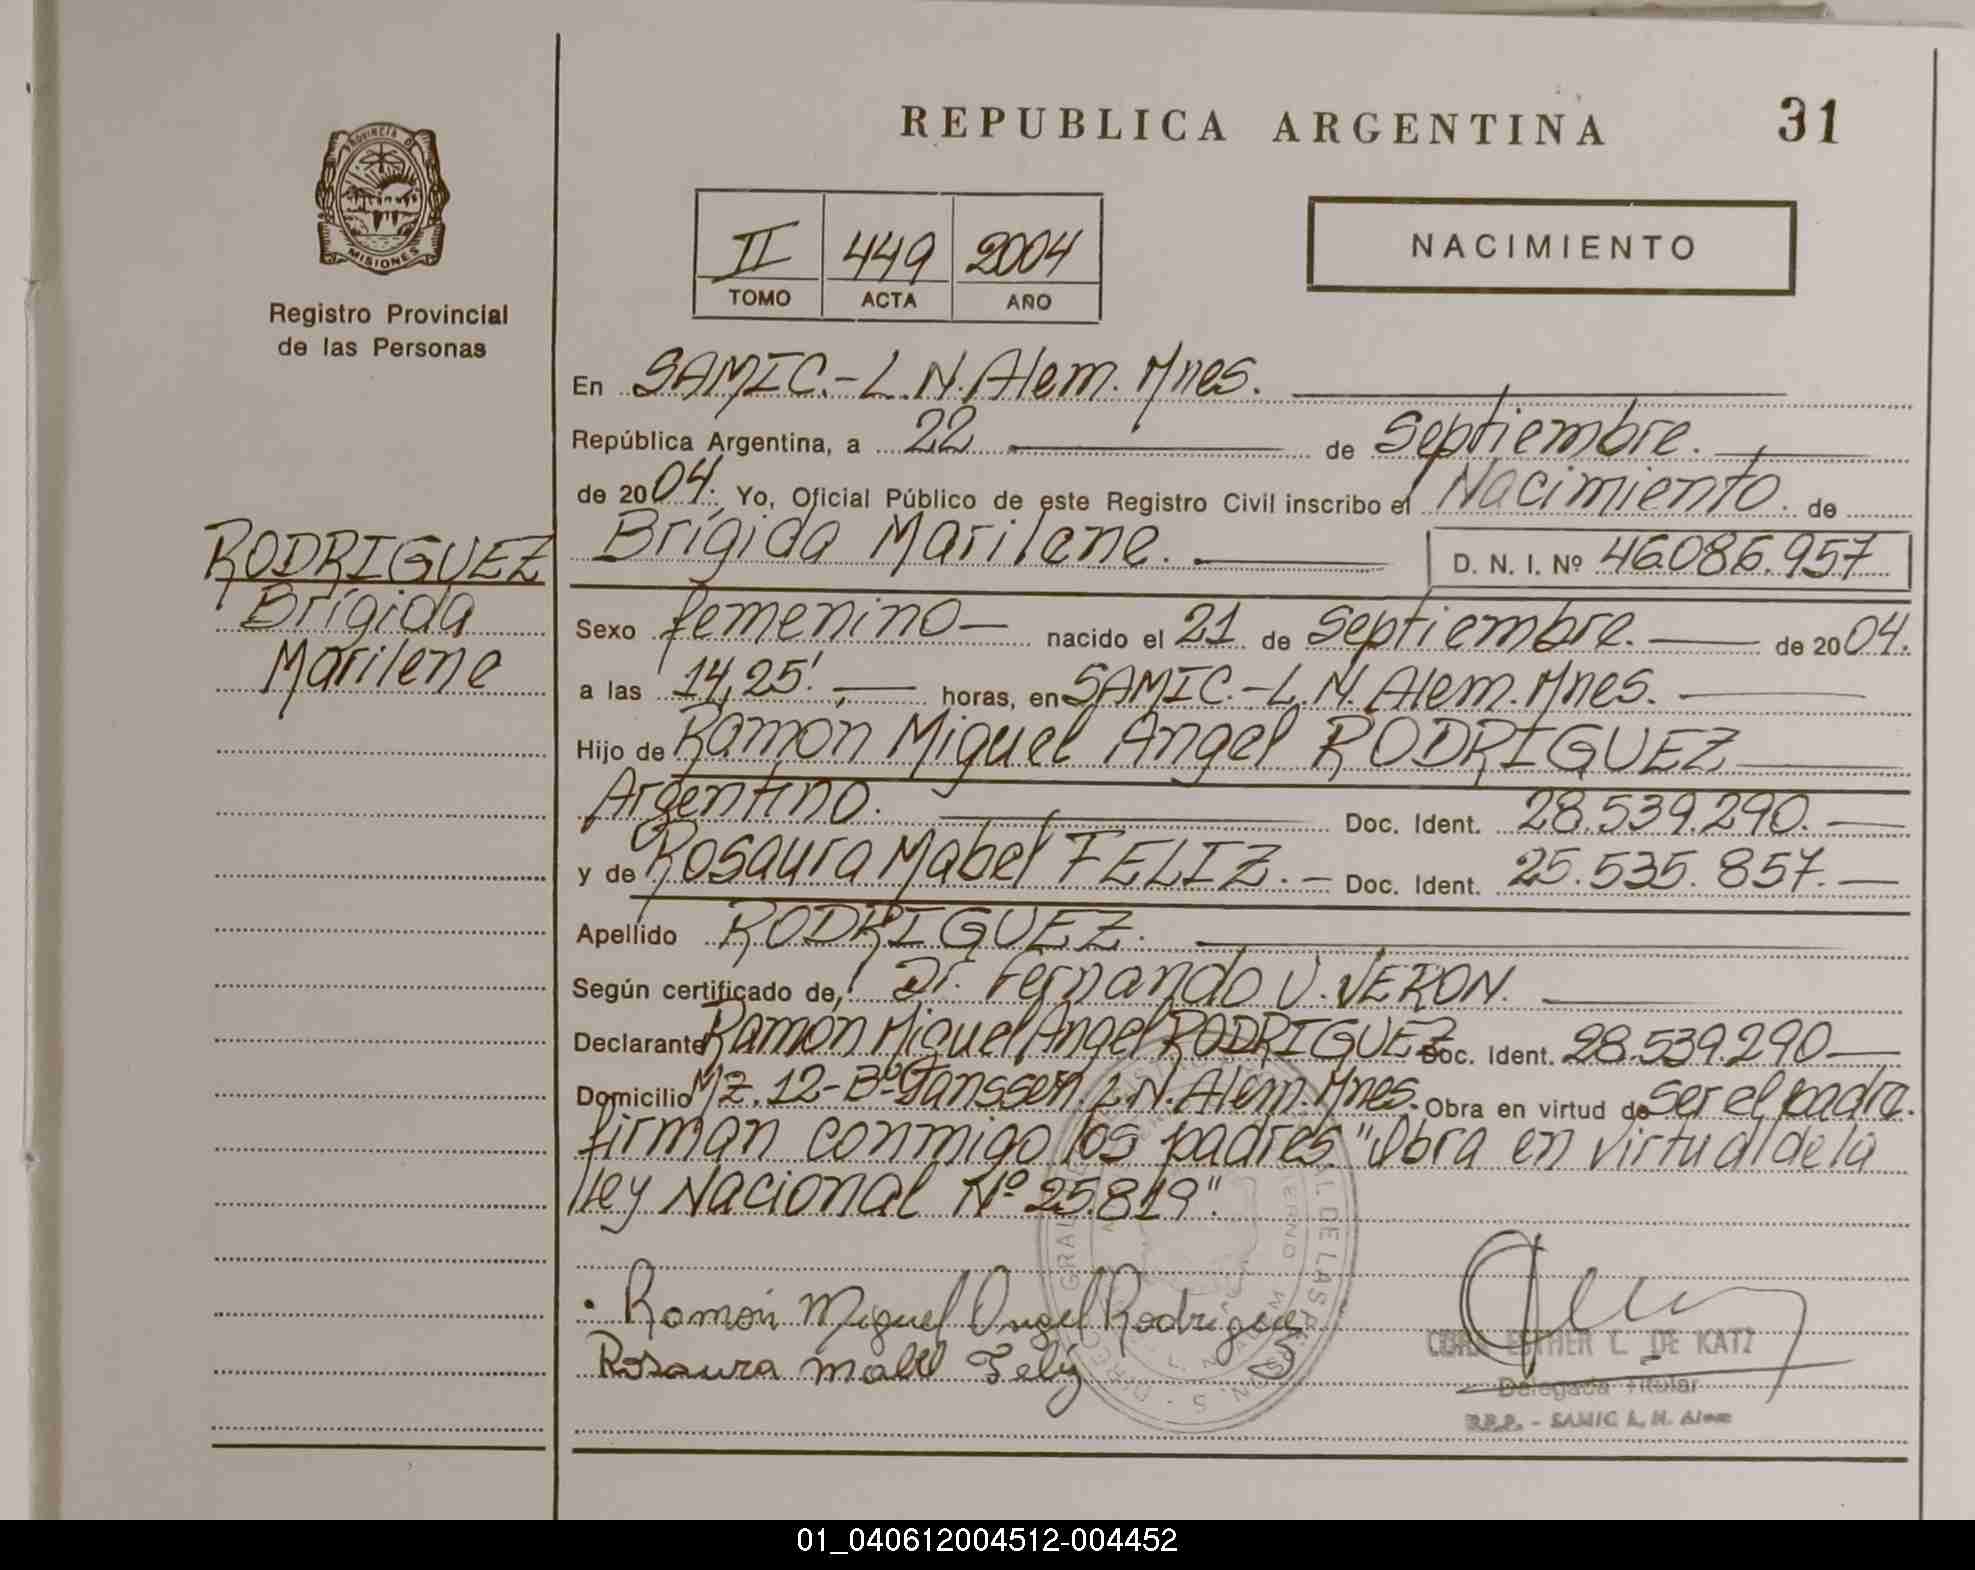 REPUBLICA ARGENTINA
31
PROVINCIA DE
MISIONES
Registro Provincial
de las Personas
II 449 2004
TOMO ACTA AÑO
NACIMIENTO
En SAMIC.-L.N.Alem.Mnes.
República Argentina, a 22 de Septiembre.
de 2004. Yo, Oficial Público de este Registro Civil inscribo el Nacimiento. de
Brígida Marilene. D. N. I. Nº 46.086.957
RODRIGUEZ
Brígida
Marilene
Sexo femenino— nacido el 21 de Septiembre. de 2004.
a las 14,25'. horas, en SAMIC.-L.N.Alem.Mnes.
Hijo de Ramón Miguel Angel RODRIGUEZ
Argentino. Doc. Ident. 28.539.290.—
y de Rosaura Mabel FELIZ.— Doc. Ident. 25.535.857.—
Apellido RODRIGUEZ.
Según certificado de, Dr. Fernando V. VERON.
Declarante Ramón Miguel Angel RODRIGUEZ Doc. Ident. 28.539.290—
Domicilio MZ.12-Bº Janssen.L.N.Alem.Mnes. Obra en virtud de ser el padre.
firman conmigo los padres."Obra en virtud de la
lley Nacional Nº 25.819".
Ramón Miguel Angel Rodriguez
Rosaura Mabel Feliz
ESTHER L. DE KATZ
Delegada Titular
R.P.P. - SAMIC L. N. Alem
01_040612004512-004452